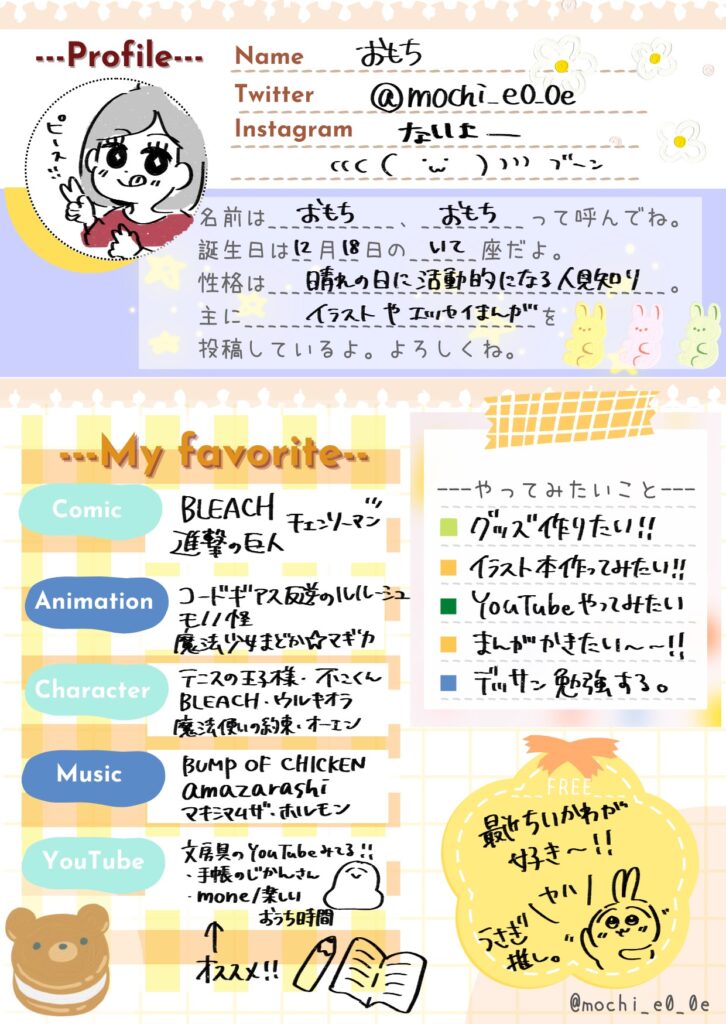 ---Profile---
Name おもち
Twitter @mochi_e0_0e
Instagram ないよー
((( ( ˙ω˙ ) ))) ブーン
ピース
名前は おもち 、 おもち って呼んでね。
誕生日は12月18日の いて 座だよ。
性格は 晴れの日に活動的になる人見知り 。
主に イラストやエッセイまんが を
投稿しているよ。よろしくね。
---My favorite---
Comic
BLEACH チェンソーマン
進撃の巨人
Animation
コードギアス反逆のルルーシュ
モノノ怪
魔法少女まどか☆マギカ
Character
テニスの王子様・不二くん
BLEACH・ウルキオラ
魔法使いの約束・オーエン
Music
BUMP OF CHICKEN
amazarashi
マキシマムザ・ホルモン
YouTube
文房具のYouTubeみてる!!
・手帳のじかんさん
・mone/楽しい
おうち時間
↑
オススメ!!
---やってみたいこと---
グッズ作りたい!!
イラスト本作ってみたい!!
YouTubeやってみたい
まんがかきたい〜〜!!
デッサン勉強する。
FREE
最近ちいかわが
好き〜!!
ヤハ
うさぎ
推し。
@mochi_e0_0e